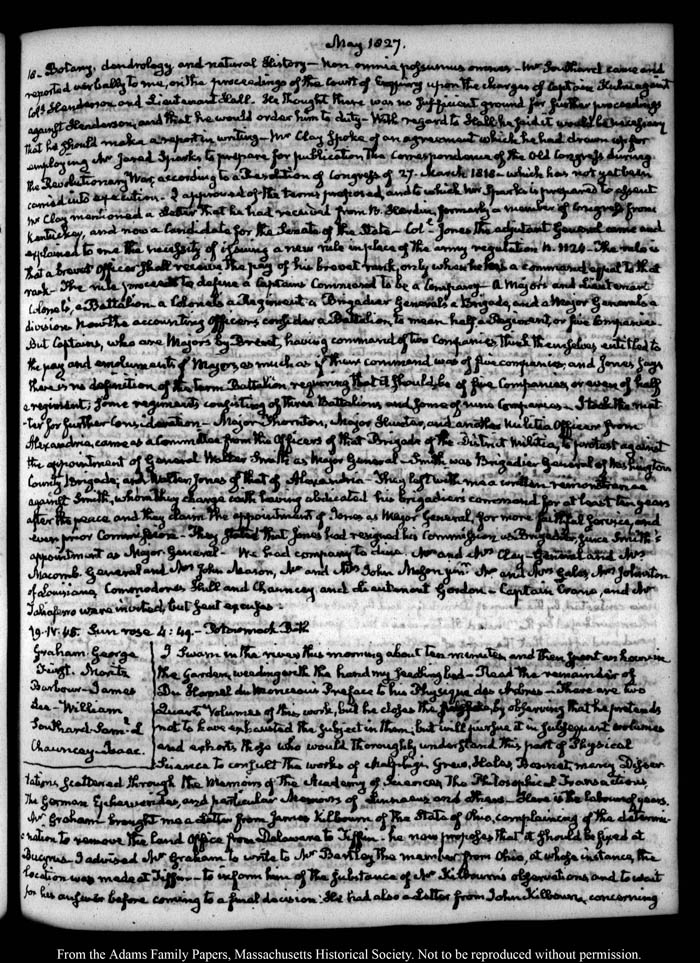 May 1827.
18- Botany, dendrology, and natural History- non omnia possumus omnes- Mr Southard came and
reported verbally to me, on the proceedings of the Court of Enquiry upon the charges of Captain Kuhn against
Coll. Henderson and Lieutenant Hall. He thought there was no sufficient ground for further proceedings
against Henderson, and that he would order him to duty- With regard to Hall he said it would be necessary
that he should make a report in writing- Mr Clay spoke of an agreement which he had drawn up for
employing Mr Jared Sparks to prepare for publication the Correspondence of the Old Congress during
the Revolutionary War, according to a Resolution of Congress of 27. March 1818- which has not yet been
carried into execution- I approved of the terms proposed, and to which Mr Sparks is prepared to assent
Mr Clay mentioned a Letter that he had received from B. Hardin, formerly a member of Congress from
Kentuckey, and now a Candidate for the Senate of the State- Coll. Jones the adjutant General came and
explained to me the necessity of issuing a new rule in place of the army regulation N. 1124- The rule is
that a brevet Officer shall receive the pay of his brevet rank, only when he has a command equal to that
rank- The rule proceeds to define a Captains Command to be a Company- A Majors and Lieutenant
Colonels, a Battalion- a Colonels a Regiment a Brigadier Generals a Brigade, and a Major Generals a
division. Now the accounting Officers consider a Battalion, to mean half a Regiment, or five Companies-
But Captains, who are Majors by Brevet, having command of two Companies think themselves entitled to
the pay and emoluments of Majors, as much as if their command was of five companies, and Jones says
there is no definition of the term Battalion, requiring that it should be of five Companies, or even of half
a regiment; some regiments consisting of three Battalions, and some of nine Companies- I took the mat
-ter for further consideration- Major Thornton, Major Hunter, and another Militia Officer from
Alexandria, came as a Committee from the Officers of that Brigade of the District Militia, to protest against
the appointment of General Walter Smith as Major General- Smith was Brigadier General of Washington
County Brigade; and Walter Jones of that of Alexandria- They left with me a written remonstrance
against Smith, whom they charge with having abdicated his brigadiers command for at least ten years
after the peace and they claim the appointment of Jones as Major General, for more faithful service, and
even prior Commission- They stated that Jones had resigned his Commission as Brigadier, since Smith's
appointment as Major General- We had company to dine. Mr and Mrs Clay- General and Mrs
Macomb. General and Mrs John Mason, Mr and Mrs John Mason junr. Mr and Mrs Gales, Mrs Johnston
of Louisiana, Commodores Hull and Chauncey and Lieutenant Gordon- Captain Crane, and Mr
Taliaferro were invited, but sent excuses.
19. IV. 45. Sun rose 4:49- Potowmack Bath
Graham. George
Furst. Moritz
Barbour- James
Lee- William
Southard- Saml. L
Chauncey- Isaac.
I swam in the river this morning about ten minutes, and then spent an hour in
the Garden, weeding with the hand my seedling bed- Read the remainder of
Du Hamel du Monceaus Preface to his Physique des Arbres- There are two
Quarto Volumes of this work, but he closes the preface, by observing that he pretends
not to have exhausted the subject in them; but will pursue it in subsequent volumes
and exhorts those who would thoroughly understand this part of Physical
Science to consult the works of Malpighi, Grew, Hales, Bonnet, many Disser
tations, scattered through the Memoirs of the Academy of Sciences, The Philosophical Transactions,
the German Ephemerides, and particular Memoirs of Linnaeus and others- Here is the labour of years.
Mr Graham brought me a Letter from James Kilbourn of the State of Ohio, complaining of the determi-
-nation to remove the Land Office from Delaware to Tiffin- he now proposes that it should be fixed at
Bucyrus. I advised Mr Graham to write to Mr Bartley the member from Ohio, at whose instance, the
location was made at Tiffin- to inform him of the substance of Mr Kilbourn's observations, and to wait
for his answer before coming to a final decision. He had also a Letter from John Kilbourn, concerning
From the Adams Family Papers, Massachusetts Historical Society. Not to be reproduced without permission.